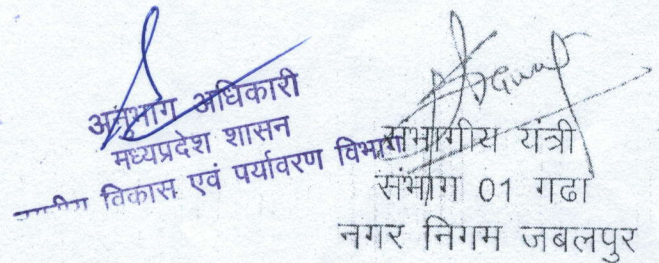 अनुभाग अधिकारी
मध्यप्रदेश शासन
विकास एवं पर्यावरण विभाग
संभागीय यंत्री
संभाग 01 गढा
नगर निगम जबलपुर